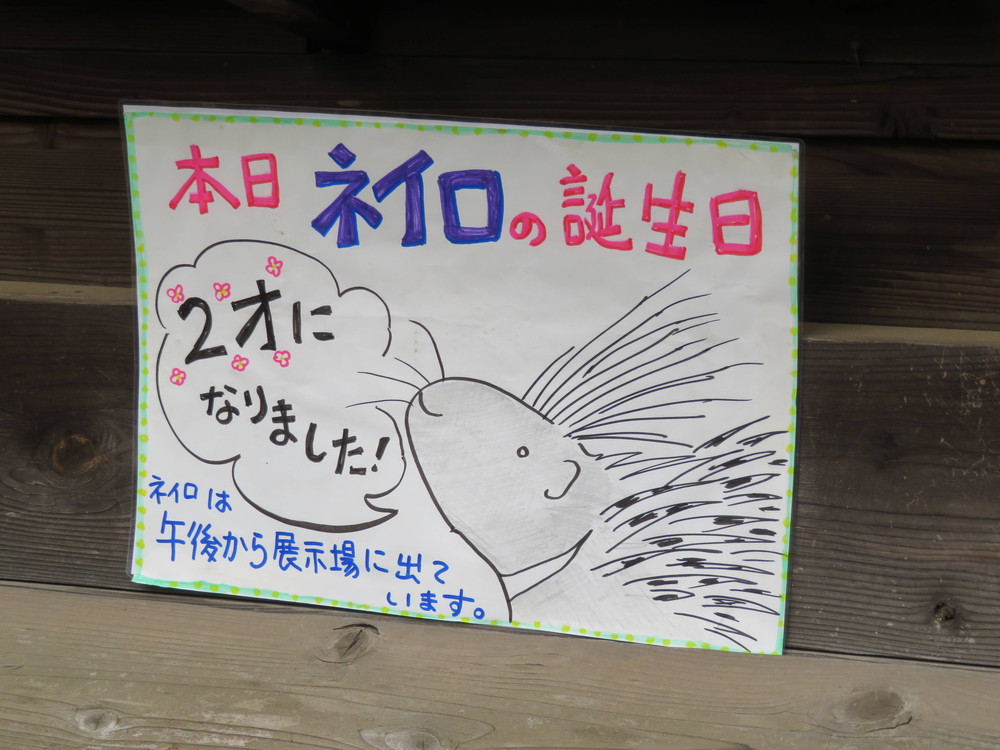 本日 ネイロの誕生日
2才に
なりました!
ネイロは
午後から展示場に出て
います。